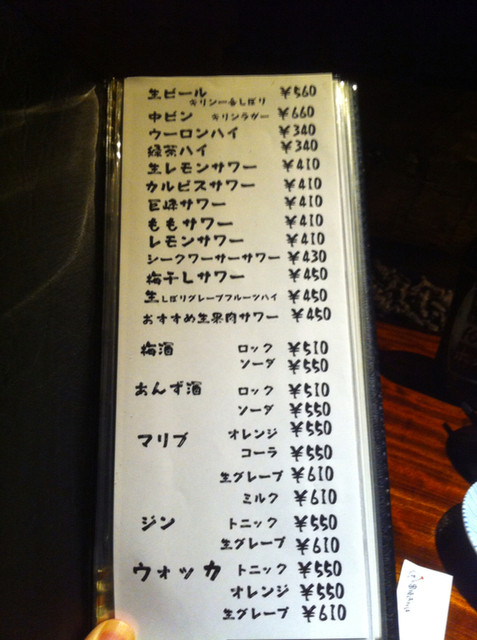 生ビール キリン一番しぼり ¥560
中ビン キリンラガー ¥660
ウーロンハイ ¥340
緑茶ハイ ¥340
生レモンサワー ¥410
カルピスサワー ¥410
巨峰サワー ¥410
ももサワー ¥410
レモンサワー ¥410
シークワーサーサワー ¥430
梅干しサワー ¥450
生しぼりグレープフルーツハイ ¥450
おすすめ生果肉サワー ¥450
梅酒 ロック ¥510
ソーダ ¥550
あんず酒 ロック ¥510
ソーダ ¥550
マリブ オレンジ ¥550
コーラ ¥550
生グレープ ¥610
ミルク ¥610
ジン トニック ¥550
生グレープ ¥610
ウォッカ トニック ¥550
オレンジ ¥550
生グレープ ¥610